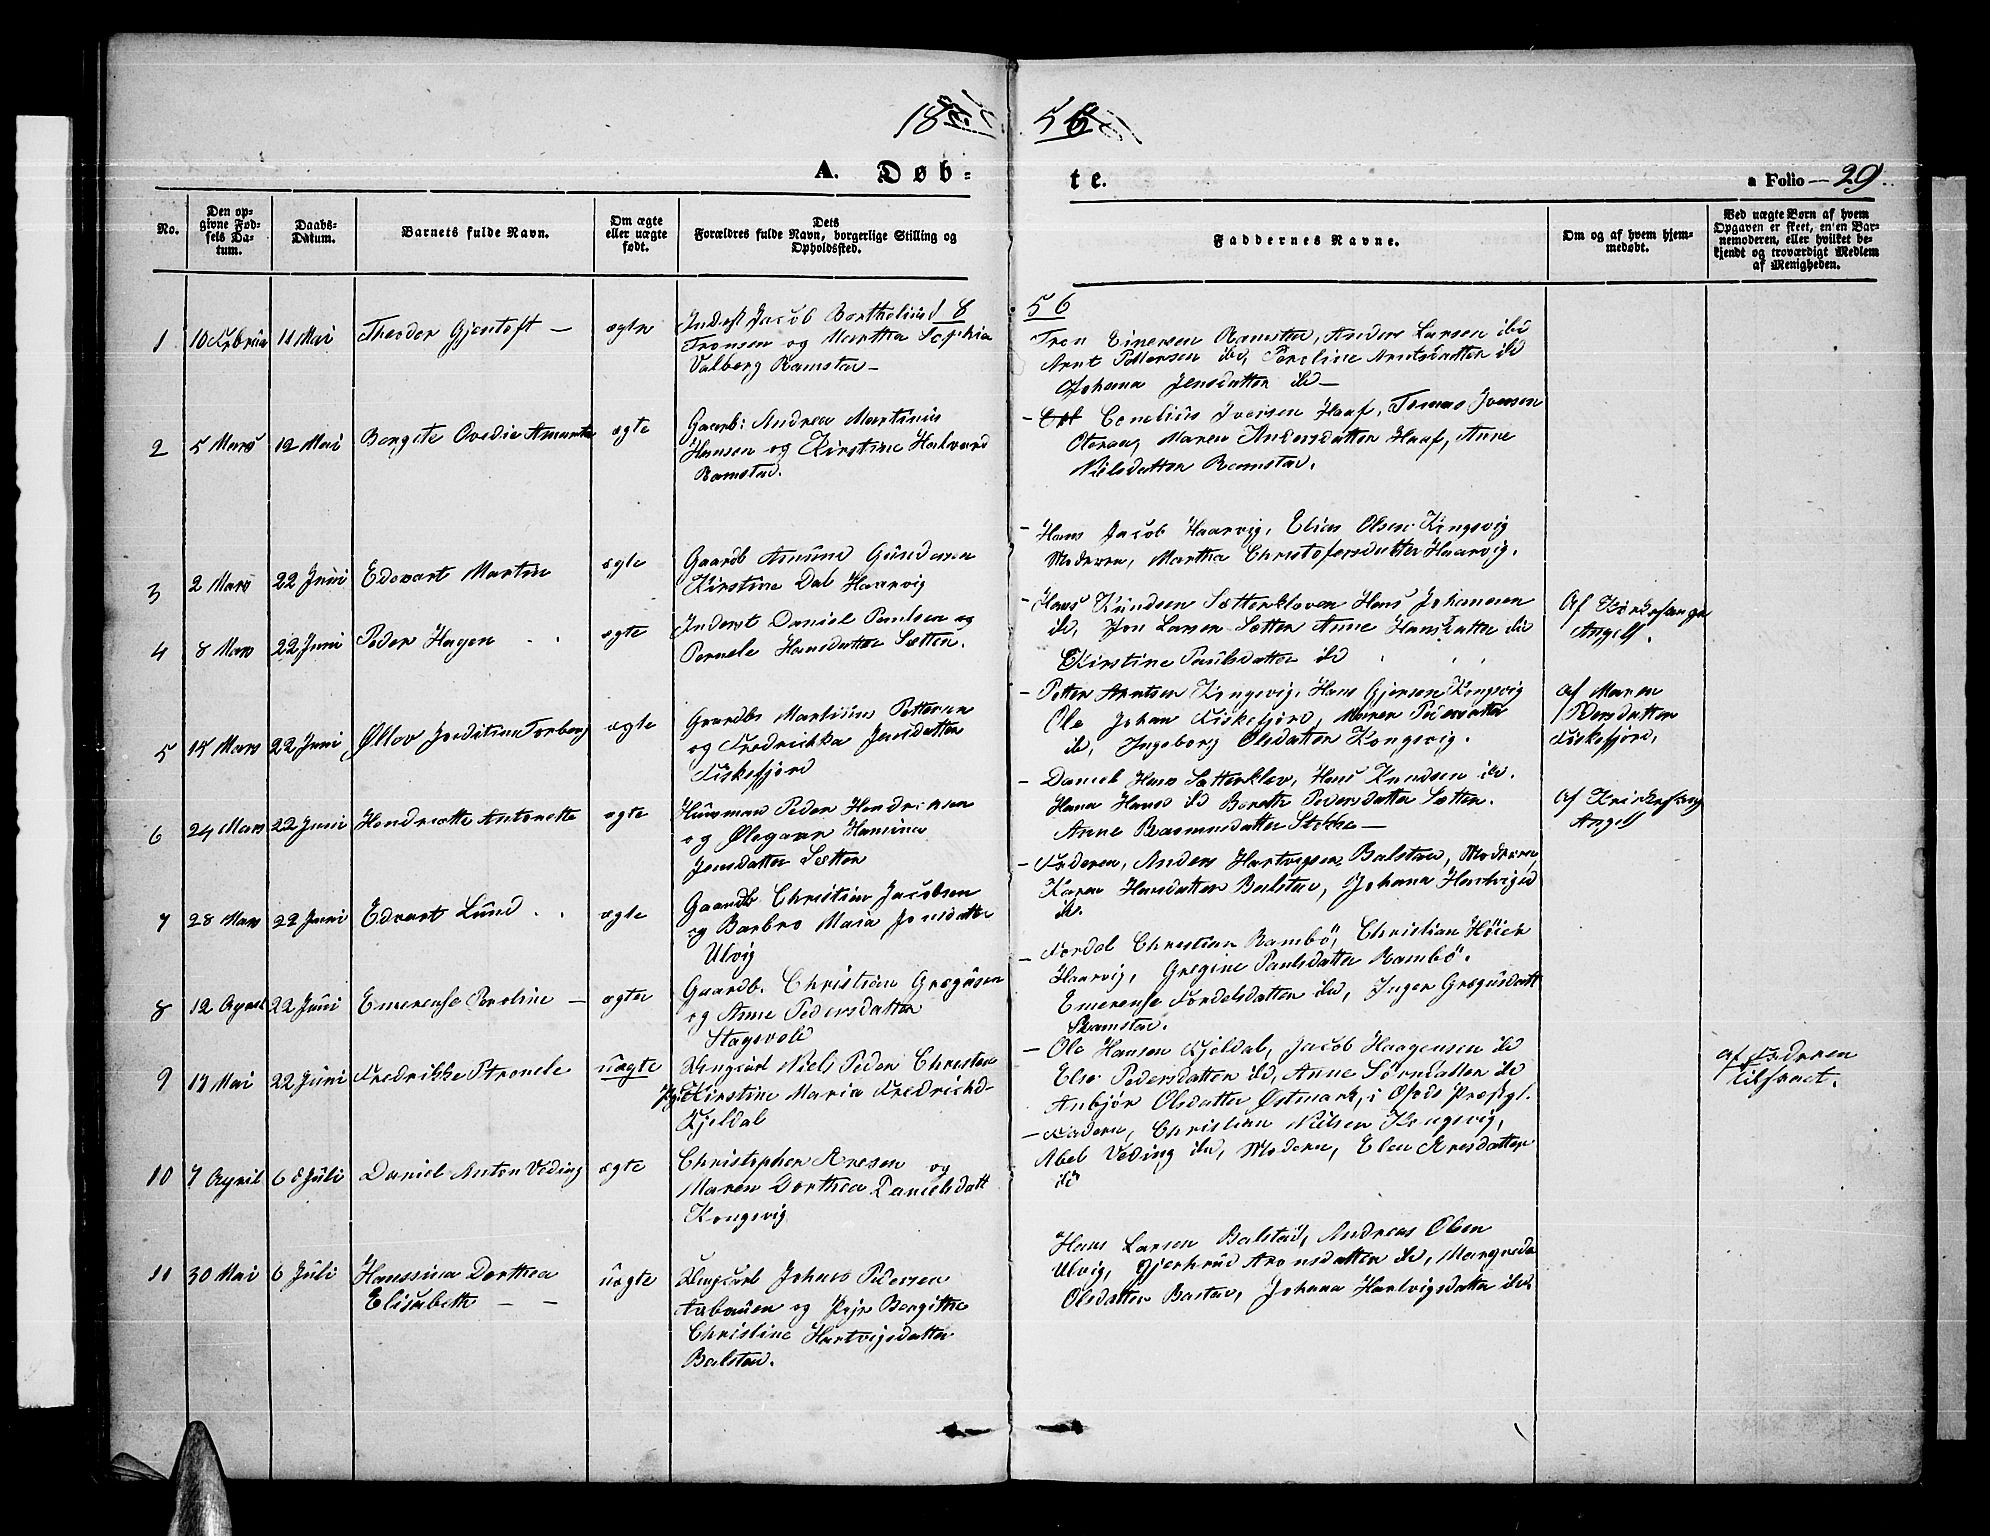 18
56
A. Døb-
te.
a Folio — 29.
No.
Den op-
givne Fød-
sels Da-
tum.
Daabs-
Datum.
Barnets fulde Navn.
Om ægte
eller uægte
født.
Dets
Forældres fulde Navn, borgerlige Stilling og
Opholdssted.
Faddernes Navne.
Om og af hvem hjem-
medøbt.
Ved uægte Børn af hvem
Opgaven er skeet, en'en Bar-
nemoderen, eller hvilket be-
kjendt og troværdigt Medlem
af Menigheden.
18
56
1 10 Februar 11 Mai Theodor Gjentoft — ægte
Inderst Jacob Bartholius
Tronsen og Martha Sophia
Valberg Ramstad —
Tron Einersen Ramstad, Anders Larsen ibd
Arnt Pettersen ibd, Pereline Arntsdatter ibd
Johana Jensdatter ibd —
2 5 Mars 12 Mai Bergete Ovedie Amanda ægte
Gaarb: Andrea Martinus
Hansen og Kirstine Halvord
Ramstad.
— Conelius Iversen Haaf, Tomas Iversen
Oteraa, Maren Andersdatter Haaf, Anne
Nielsdatter Ramstad.
3 2 Mars 22 Juni Edevart Martin ægte
Gaardb Amund Gundersen
Kirstine Dal Haarvig
— Hans Jacob Haarvig, Elias Olsen Kongsvig
Moderen, Martha Christofersdatter Haarvig.
4 8 Mars 22 Juni Peder Hagen ægte
Inderst Daniel Paulsen og
Pernele Hansdatter Sætter.
— Hans Knudsen Sætterkloven Hans Johannesen
ibd, Jon Larsen Sætter Anne Hansdatter ibd
Kirstine Paulsdatter ibd
Af Kirkesanger
Angell.
5 15 Mars 22 Juni Torberg ægte
Gaardb Martinus Pettersen
og Fredrikka Jensdatter
Fiskefjord
— Petter Arntsen Kongsvig, Hans Gjersen Kongsvig
Ole Johan Fiskefjord, Maren Pedersdatter
ibd, Ingeborg Olsdatter Kongsvig.
af Maren
Pedersdatter
Fiskefjord.
6 24 Mars 22 Juni Hendriette Antonette ægte
Huusmand Peder Hendriksen
og Ølegaar Hansina
Jensdatter Sætter
— Daniel Hans Sætterklov, Hans Knudsen ibd.
Hana Hans ibd Berethe Pedersdatter Sætter.
Anne Rasmusdatter Stokke —
af Kirkesang
Angell
7 28 Mars 22 Juni Edvart Lund ægte
Gaardb Christian Jacobsen
og Barbro Maia Jonsdatter
Ulvig
— Faderen, Anders Hartvigsen Balstad, Moderen,
Karen Hansdatter Balstad, Johana Hartvigsd
ibd.
8 12 April 22 Juni Emerense Peroline — ægte
Gaardb. Christian Gregusen
og Anne Pedersdatter
Stagevold
— Fordel Christian Rambö, Christian Höier
Haarvig, Gregine Paulsdatter Rambö.
Emerense Fordelsdatter ibd, Inger Gregusdatt
Ramstad.
9 14 Mai 22 Juni Fredrikke Petronele uægte
Ungkarl Niels Peder Christen
Pige Kirstine Maria Fredrichd
Kjeldal
— Ole Hansen Kjeldal, Jacob Haagensen ibd
Else Pedersdatter ibd, Anne Sörensdatter ibd
Anbjør Olsdatter Østmark, i Ofods Præstgl.
af Faderen
tilstaaet.
10 7 April 6 d Juli Daniel Anton Veding ægte
Christopher Aresen og
Maren Dorthea Danielsdatt
Kongsvig
— Faderen, Christian Nilsen Kongsvig,
Abel Veding ibd, Modern, Elen Aresdatter
ibd
11 30 Mai 6 Juli Hanssina Dorthea
Elisabeth — — uægte
Ungkarl Johans Pedersen
og Pige Bergitha
Christine Hartvigsdatter
Balstad.
Hans Larsen Balstad, Andreas Olsen
Ulvig, Gjertrud Aronsdatter ibd, Margreda
Olsdatter Bastad, Johana Hartvigsdatter ibd